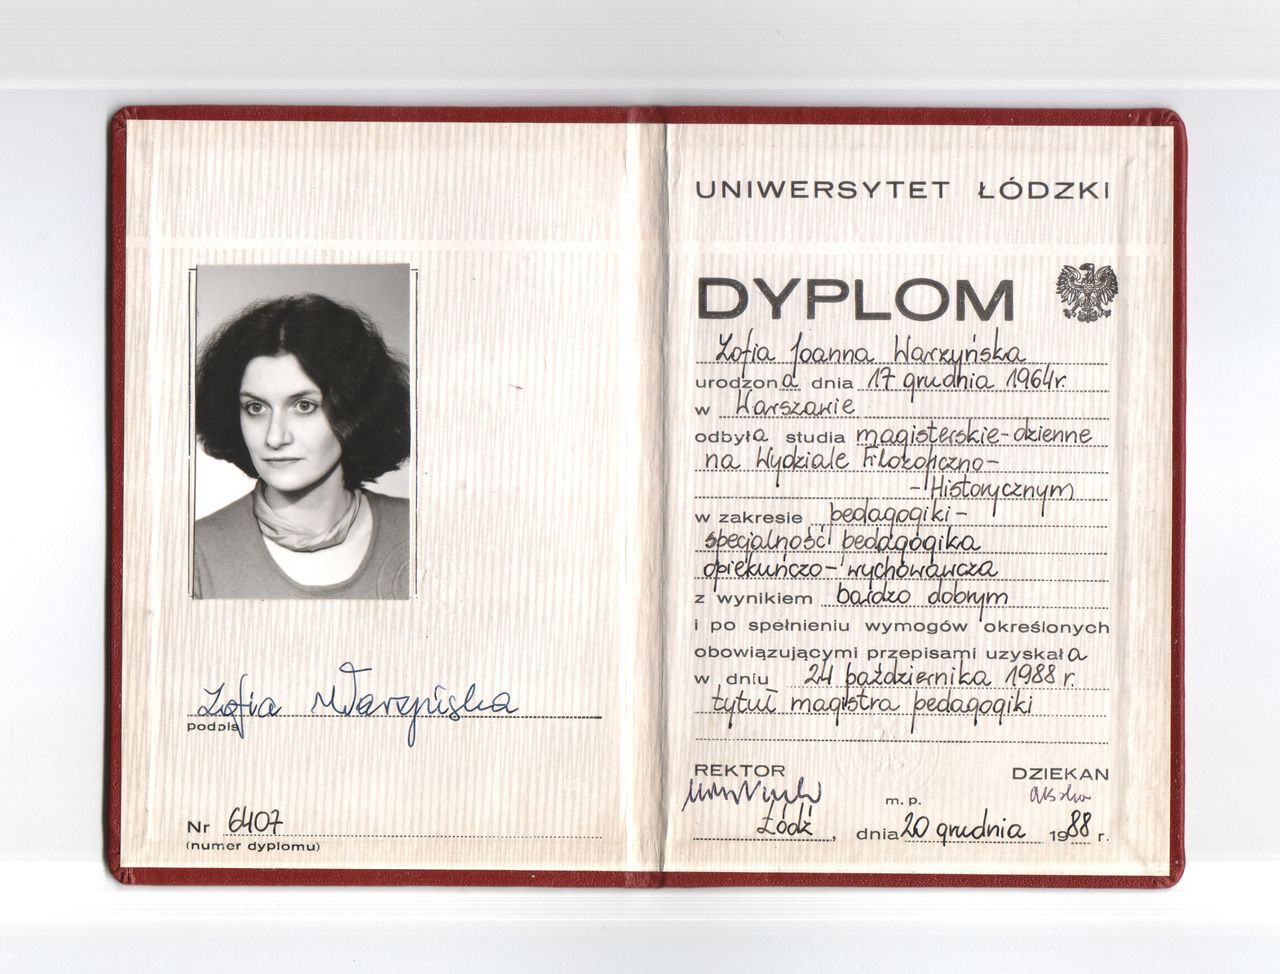 Zofia Warzyńska
podpis
Nr 6407
(numer dyplomu)
UNIWERSYTET ŁÓDZKI
DYPLOM
Zofia Joanna Warzyńska
urodzona dnia 17 grudnia 1964r.
w Warszawie
odbyła studia magisterskie-dzienne
na Wydziale Filozoficzno-
-Historycznym
w zakresie pedagogiki-
specjalność pedagogika
opiekuńczo-wychowawcza
z wynikiem bardzo dobrym
i po spełnieniu wymogów określonych
obowiązującymi przepisami uzyskała
w dniu 24 października 1988 r.
tytuł magistra pedagogiki
REKTOR DZIEKAN
m. p.
Łódź, dnia 20 grudnia 1988 r.